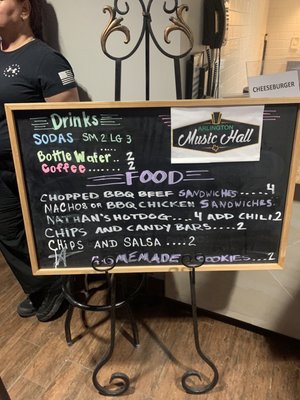 CHEESEBURGER
Drinks
SODAS SM 2 LG 3
Bottle Water.. 2
Coffee ....... 2
ARLINGTON
Music Hall
FOOD
CHOPPED BBQ BEEF SANDWICHES.....4
NACHOS OR BBQ CHICKEN SANDWICHES.
NATHAN'S HOTDOG....4 ADD CHILI.2
CHIPS AND CANDY BARS.....2
CHIPS AND SALSA ....2
HOMEMADE COOKIES...2